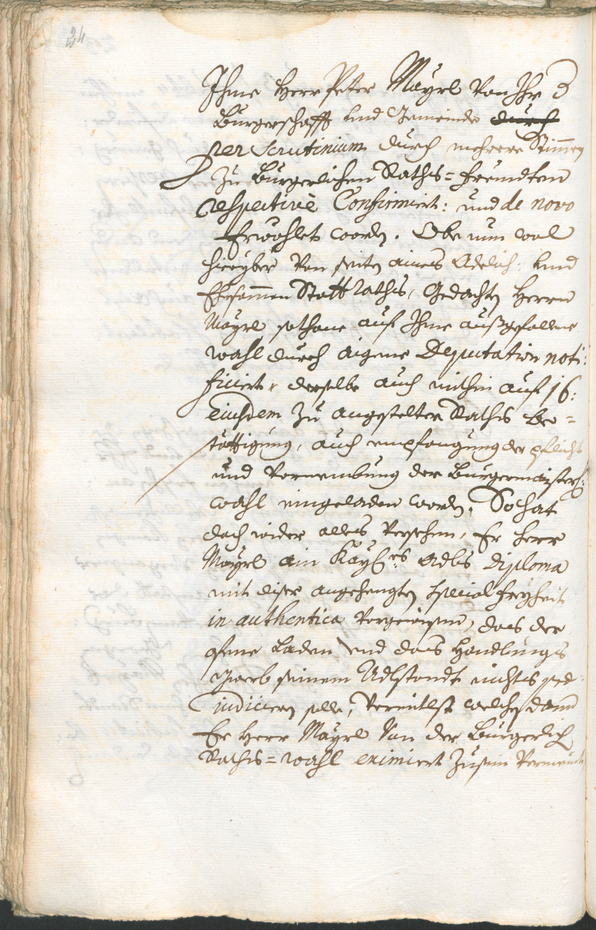 24
Ihme Herr Peter Mayrl von Ihr
Burgerschafft und Gemeinde durch
per scrutinium durch mehrere Stimen
zu Burgerlichen Raths-freundten
respectivè Confirmiert: und de novo
Erwöhlet worden. Obe nun wol
hieryber von seiten aines Adelich: und
Ehrsammen Statt Raths, gedachten Herrn
Mayrl sothane auf Ihme außgefallene
wahl durch aigene Deputation noti-
ficiert, derselbe auch mithin auf 16:
eiusdem zu angestelter Raths be-
stättigung, auch empfangung der pflicht
und vornembung der Burgermaisters
wahl eingeladen worden. So hat
doch wider alles versehen, Er Herr
Mayrl ain Kay: adls diploma
mit diser angehengten special freyheit
in authentica vorgewisen, das der
offene Laden und das Handlungs
gwerb seinem Adlstandt nichts præ-
iudicieren solle, vermitlst welches dann
Er Herr Mayrl von der Burgerlich
Raths-wahl eximiert zu sein vermeint